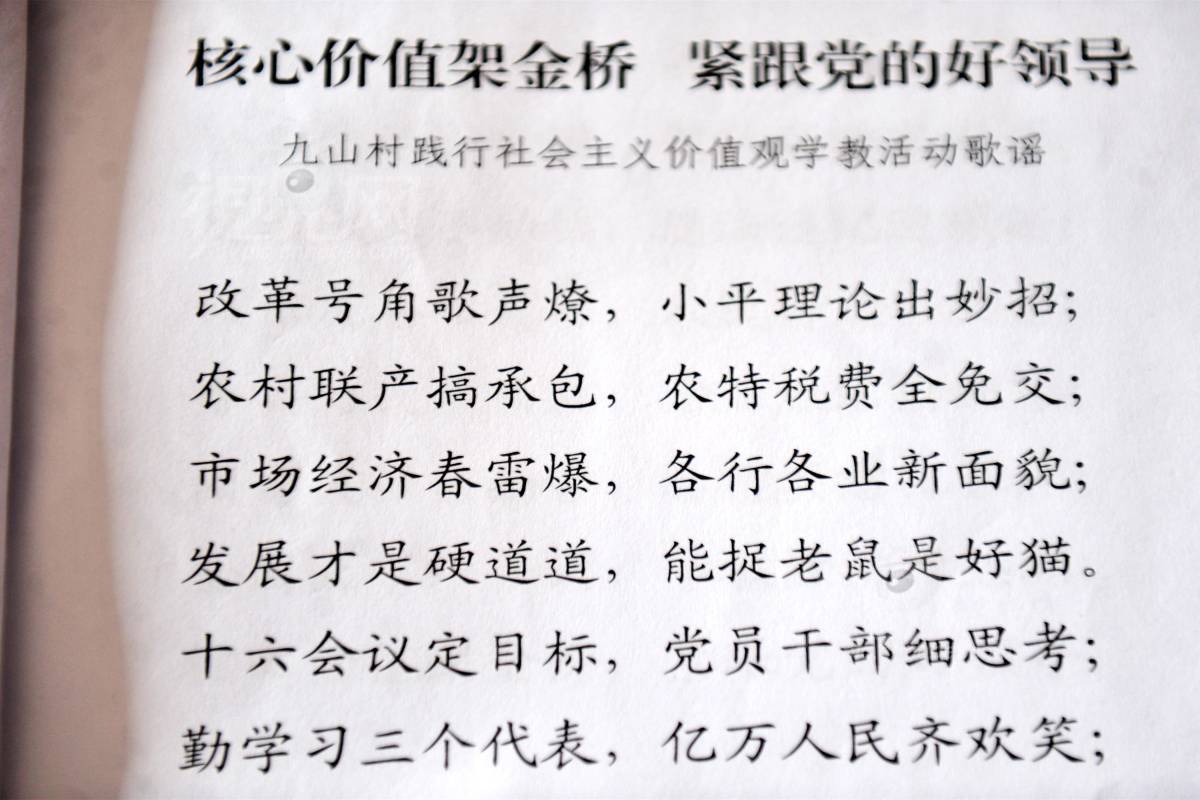 核心价值架金桥 紧跟党的好领导
九山村践行社会主义价值观学教活动歌谣
改革号角歌声燎，小平理论出妙招；
农村联产搞承包，农特税费全免交；
市场经济春雷爆，各行各业新面貌；
发展才是硬道道，能捉老鼠是好猫。
十六会议定目标，党员干部细思考；
勤学习三个代表，亿万人民齐欢笑；